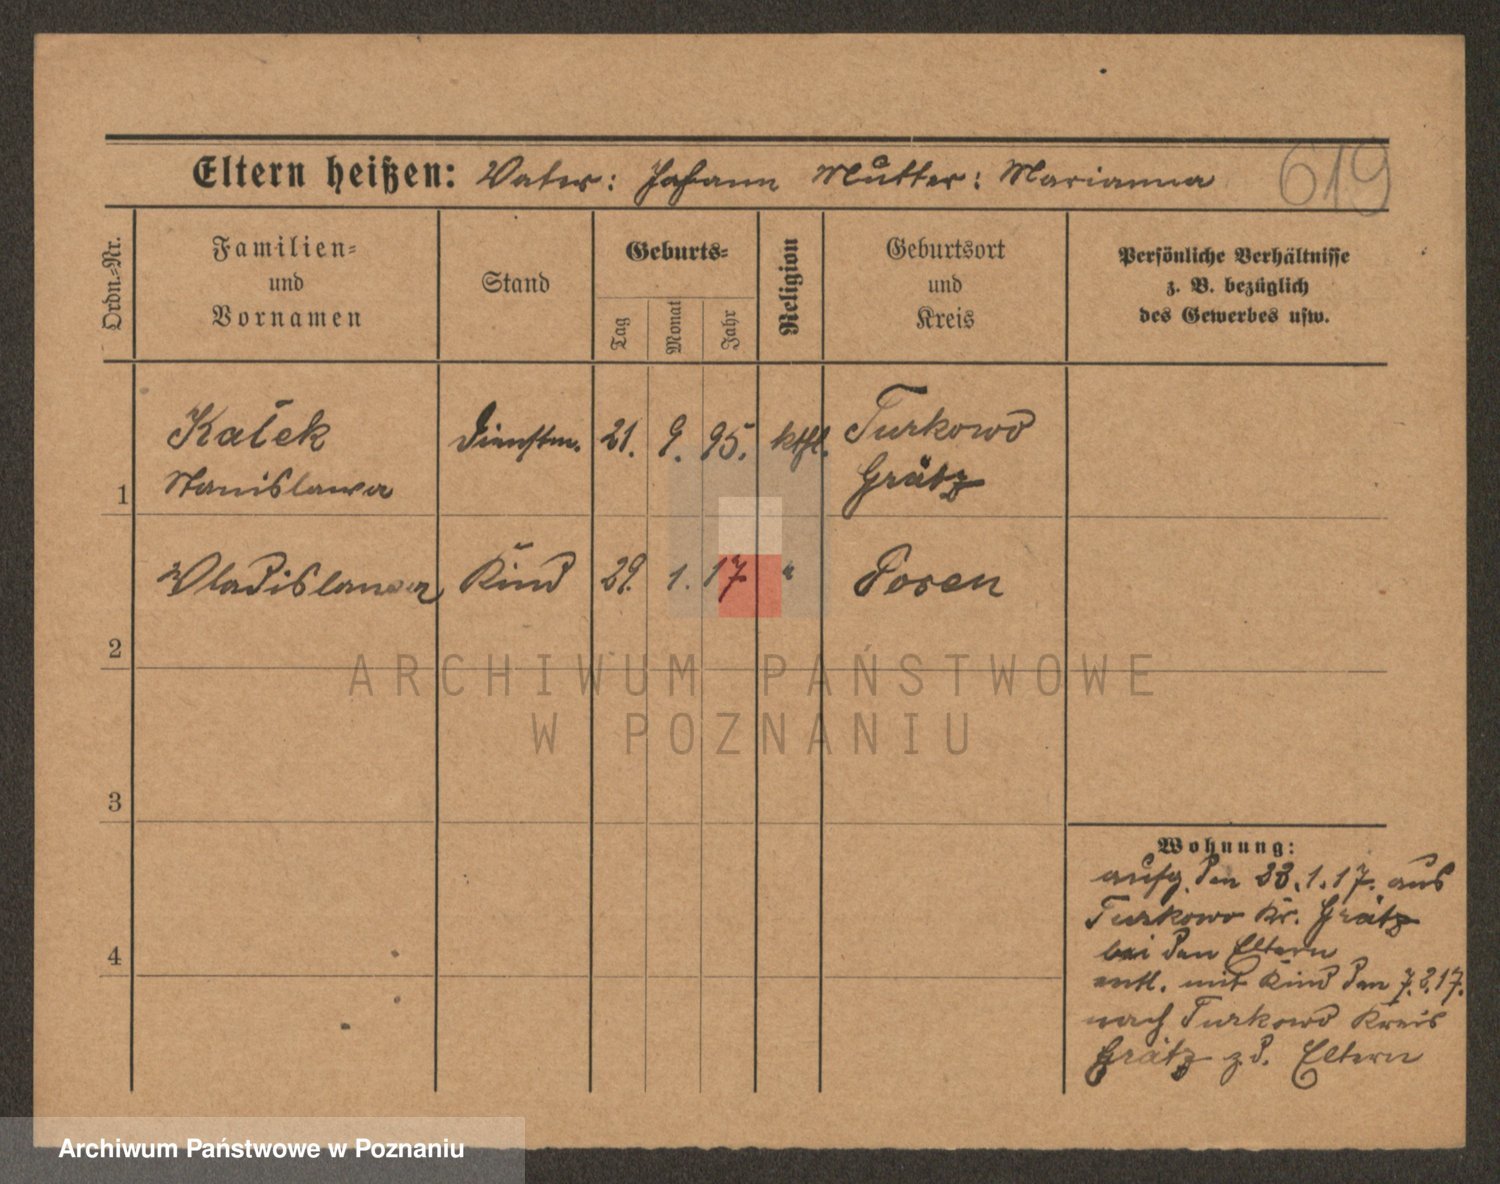 619
Eltern heißen: Vater: Johann Mutter: Marianna
Ordn.-Nr.
Familien-
und
Vornamen
Stand
Geburts-
Tag
Monat
Jahr
Religion
Geburtsort
und
Kreis
Persönliche Verhältnisse
z. B. bezüglich
des Gewerbes usw.
1
Kałek
Stanislawa
Dienstm.
21. 9. 95.
kthl.
Turkowo
Grätz
2
Wladislawa
Kind
29. 1. 17
"
Posen
3
4
Wohnung:
aufg. den 23.1.17. aus
Turkowo Kr. Grätz
bei den Eltern
entl. mit Kind den 7.2.17.
nach Turkowo Kreis
Grätz z. d. Eltern
ARCHIWUM PAŃSTWOWE
W POZNANIU
Archiwum Państwowe w Poznaniu